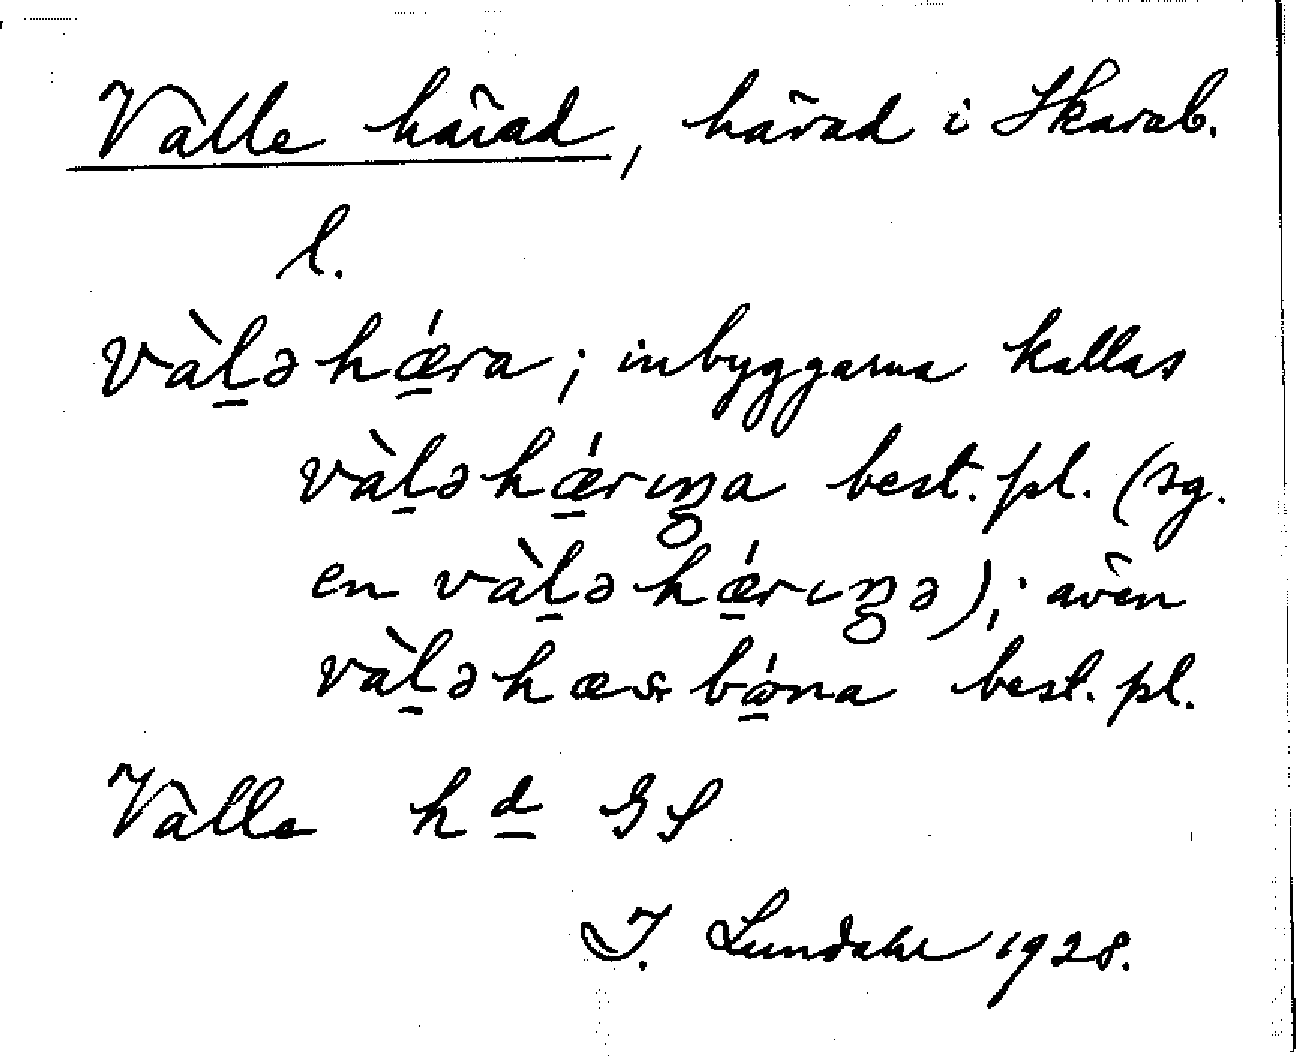 Valle härad, härad i Skarab.
l.
vàl̠ə hǽ̠ra; inbyggarna kallas
vàl̠ə hǽ̠rıŋa best. pl. (sg.
en vàl̠ə hǽ̠rıŋə); även
vàl̠ə hæs bǿ̠na best. pl.
Valle hd GS
I. Lundahl 1928.